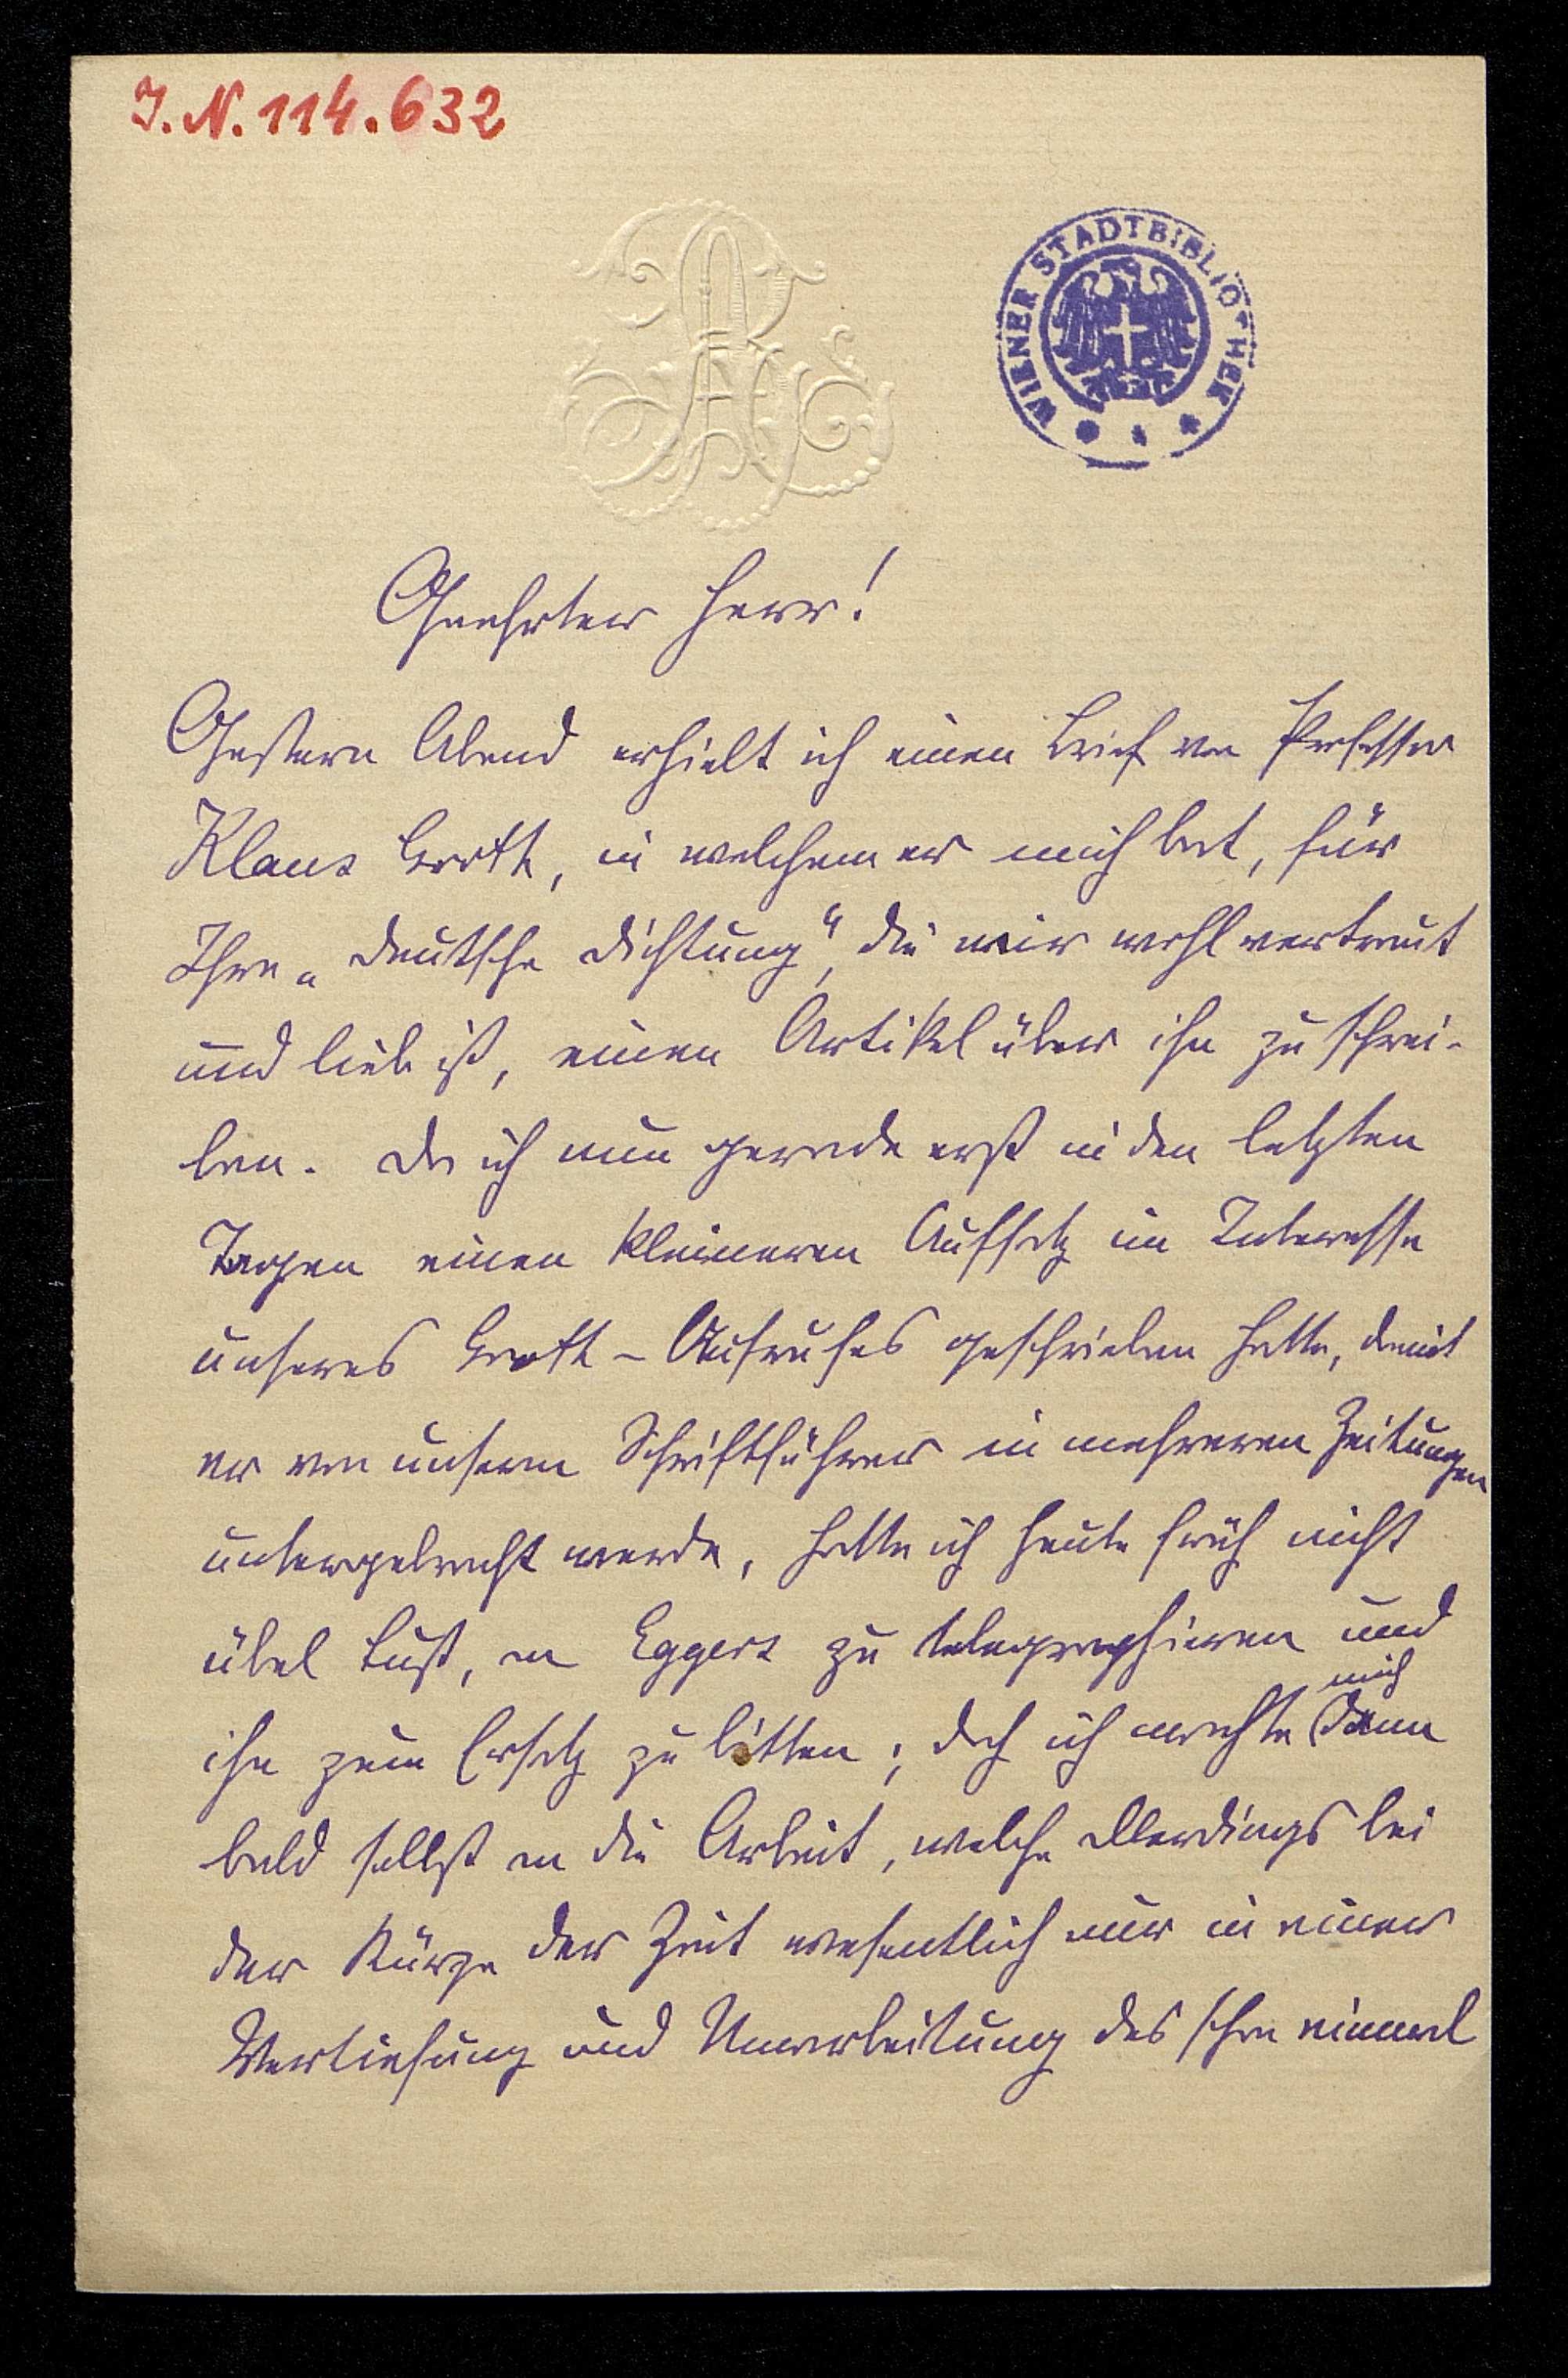 J. N. 114.632
WIENER STADTBIBLIOTHEK
Geehrter Herr!
Gestern Abend erhielt ich einen Brief von Professor
Klaus Groth, in welchem er mich bat, für
Ihre „Deutsche Dichtung“, die mir wohl vertraut
und lieb ist, einen Artikel über ihn zu schrei-
ben. Da ich nun gerade erst in den letzten
Tagen einen kleineren Aufsatz im Interesse
unseres Groth-Aufrufes geschrieben hatte, damit
er von unserm Schriftführer in mehreren Zeitungen
untergebracht werde, hatte ich heute früh nicht
übel Lust, an Eggers zu telegraphieren und
ihn zum Ersatz zu bitten; doch ich machte mich dann
bald selbst an die Arbeit, welche allerdings bei
der Kürze der Zeit wesentlich nur in einer
Vertiefung und Umarbeitung des schon einmal